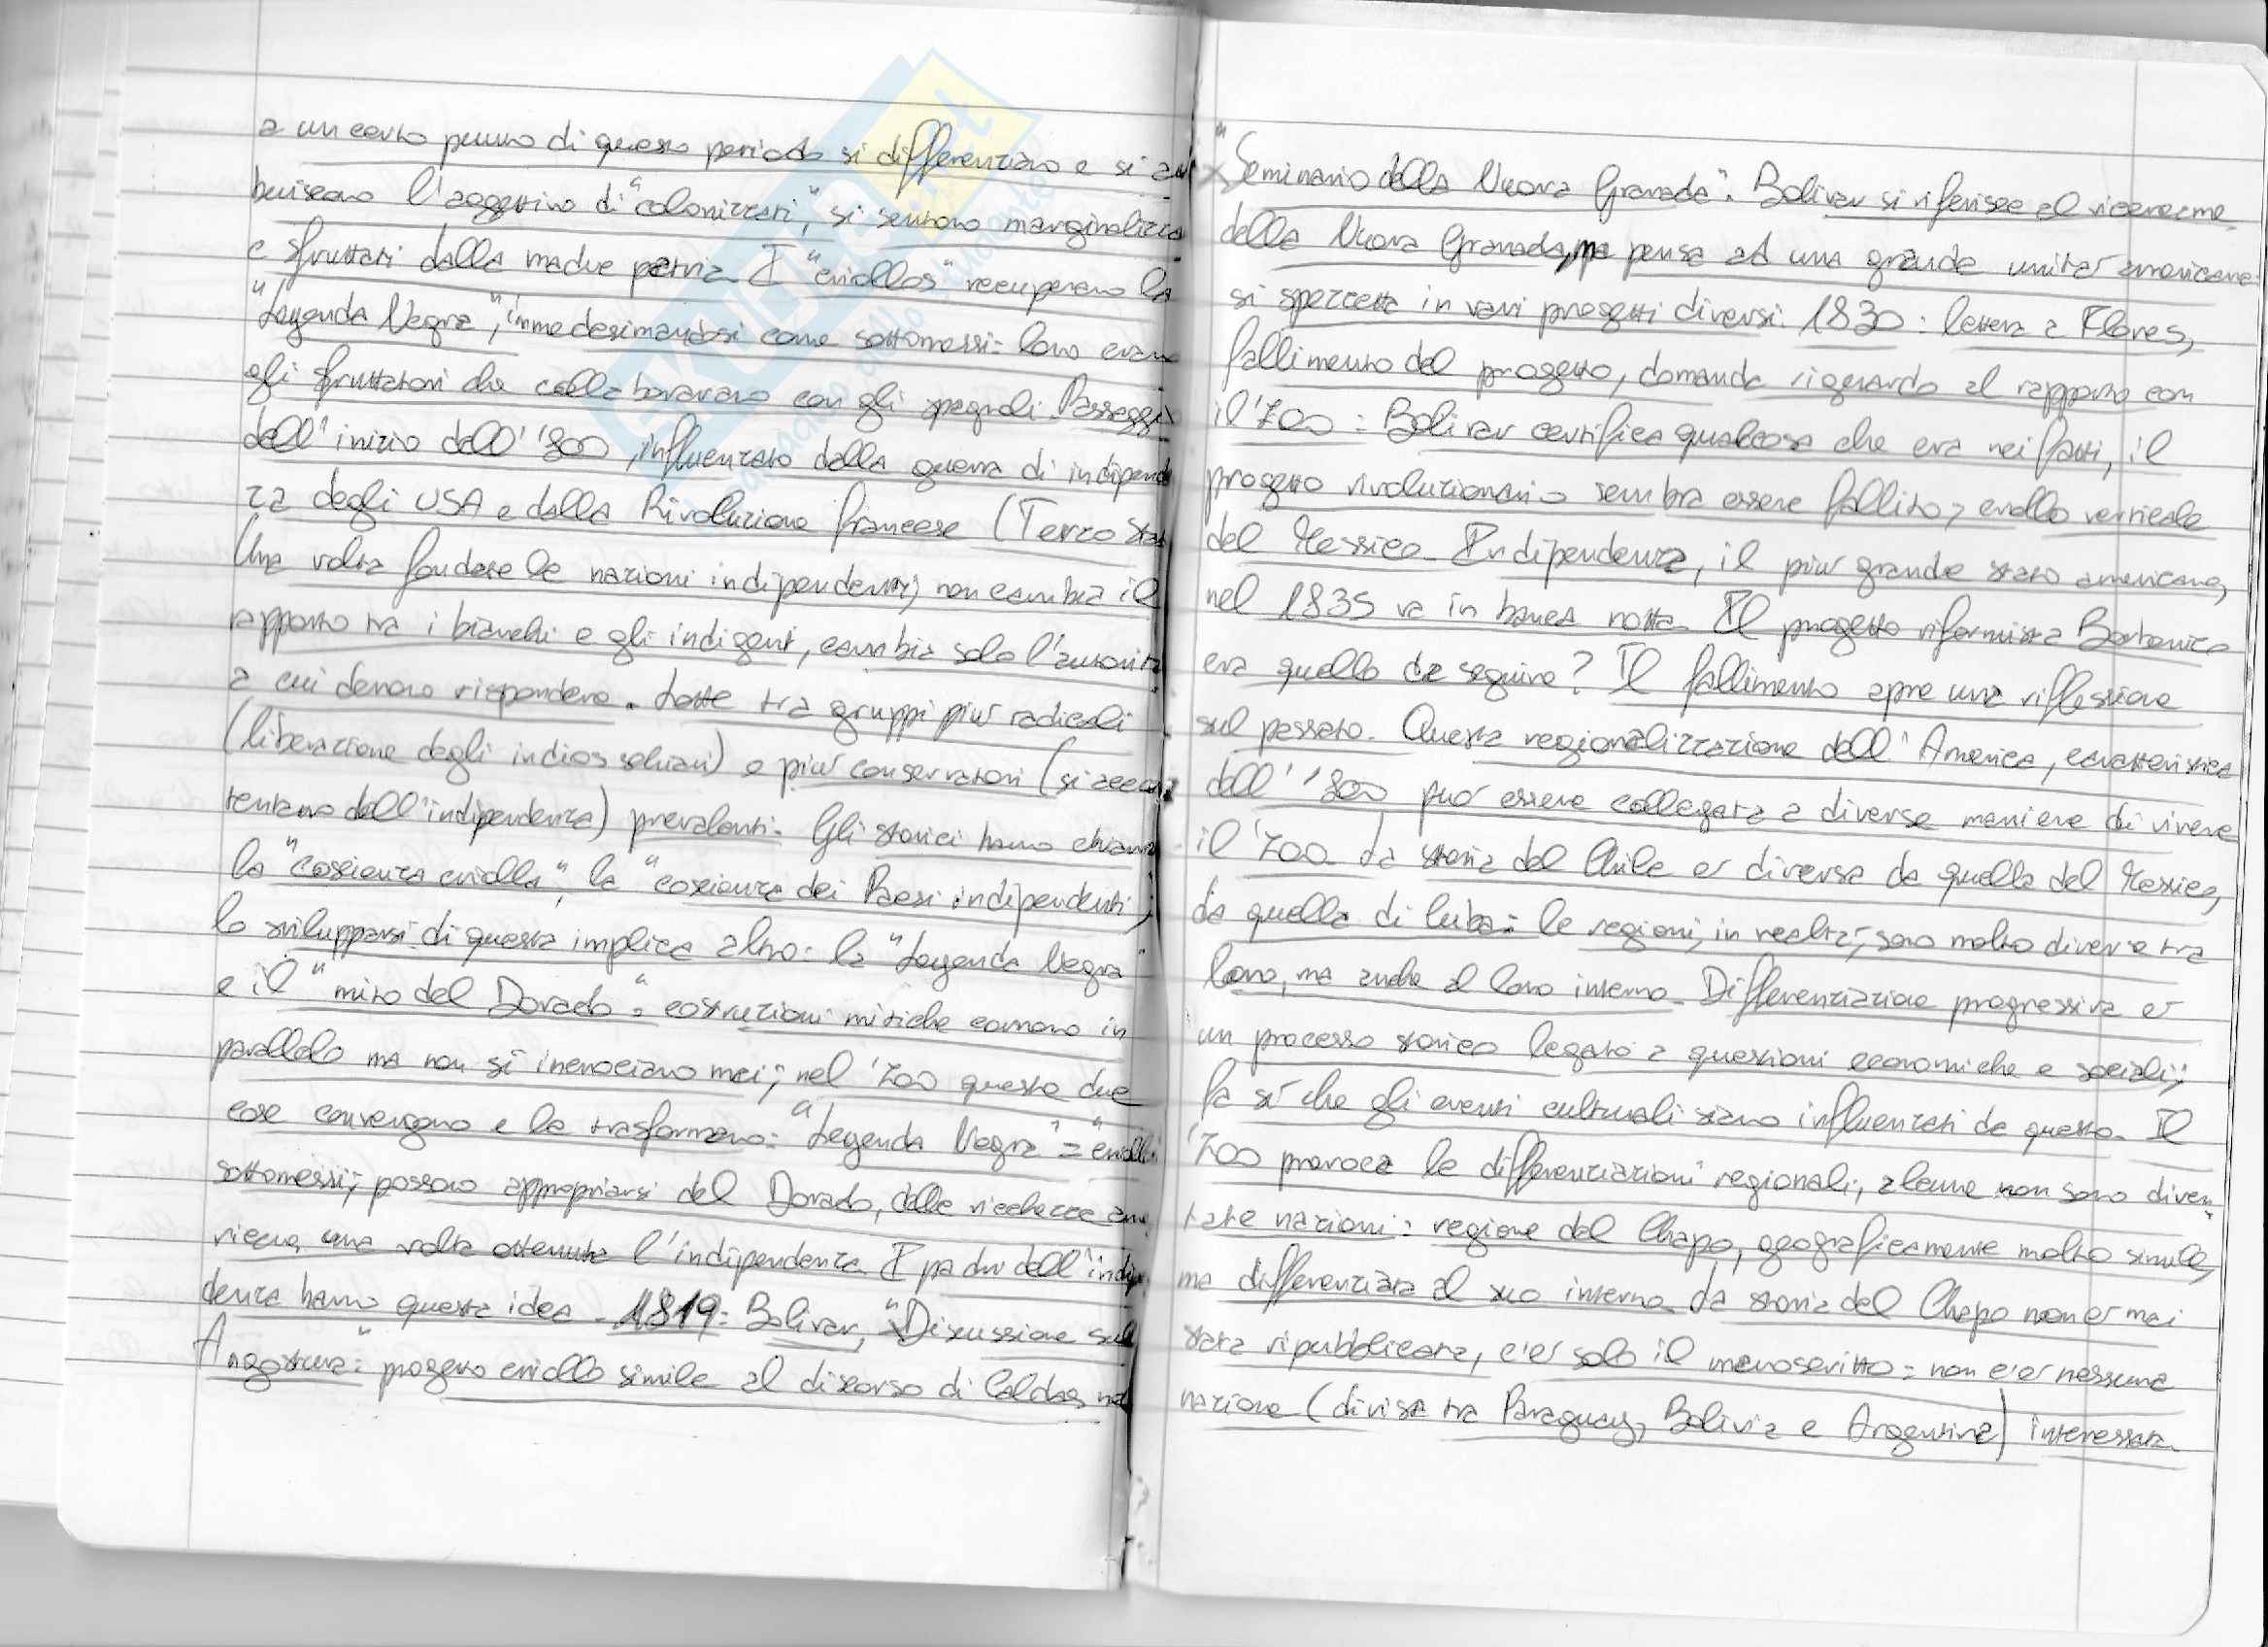 a un certo punto di questo periodo si differenziano e si
buiscono l'aggettivo di "colonizzati", si sentono marginalizza
e sfruttati dalla madre patria. I "criollos" recuperano la
"Leyenda Negra", immedesimandosi come sottomessi: loro erano
gli sfruttatori che collaboravano con gli spagnoli. Passaggio
dell'inizio dell''800, influenzato dalla guerra di indipenden
za degli USA e dalla Rivoluzione francese (Terzo Stat
Una volta fondate le nazioni indipendenti, non cambia il
rapporto tra i bianchi e gli indigeni, cambia solo l'autorità
a cui devono rispondere. Lotte tra gruppi più radicali
(liberazione degli indios schiavi) e più conservatori (si accon
tentano dell'indipendenza) prevalenti. Gli storici hanno chiama
la "coscienza criolla", la "coscienza dei Paesi indipendenti;
lo svilupparsi di questa implica altro: la "Leyenda Negra"
e il "mito del Dorado": costruzioni mitiche corrono in
parallelo ma non si incrociano mai; nel '700 queste due
cose convengono e la trasformano: "Leyenda Negra" = "criolli
sottomessi; possono appropriarsi del Dorado, delle ricchezze ame
ricane una volta ottenuta l'indipendenza. I padri dell'indip
denza hanno questa idea. 1819: Bolivar, "Discussione sul
Angostura": progetto criollo simile al discorso di Caldas nel
"Seminario della Nuova Granada". Bolivar si riferisce al vicereame
della Nuova Granada, ma pensa ad una grande unità americana
si spezzetta in vari progetti diversi. 1830: lettera a Flores,
fallimento del progetto, domanda riguardo al rapporto con
il '700: Bolivar certifica qualcosa che era nei fatti, il
progetto rivoluzionario sembra essere fallito, crollo verticale
del Messico. Indipendenza, il più grande stato americano,
nel 1835 va in banca rotta. Il progetto riformista Borbonico
era quello da seguire? Il fallimento apre una riflessione
sul passato. Questa regionalizzazione dell'America, caratteristica
dell''800, può essere collegata a diverse maniere di vivere
il '700. La storia del Chile è diversa da quella del Messico,
da quella di Cuba: le regioni, in realtà, sono molto diverse tra
loro, ma anche al loro interno. Differenziazione progressiva è
un processo storico legato a questioni economiche e sociali;
fa sì che gli eventi culturali siano influenzati da questo. Il
'700 provoca le differenziazioni regionali, alcune non sono diven
tate nazioni: regione del Chapo, geograficamente molto simile,
ma differenziata al suo interno. La storia del Chapo non è mai
stata ripubblicata, c'è solo il manoscritto: non c'è nessuna
nazione (divisa tra Paraguay, Bolivia e Argentina) interessata.